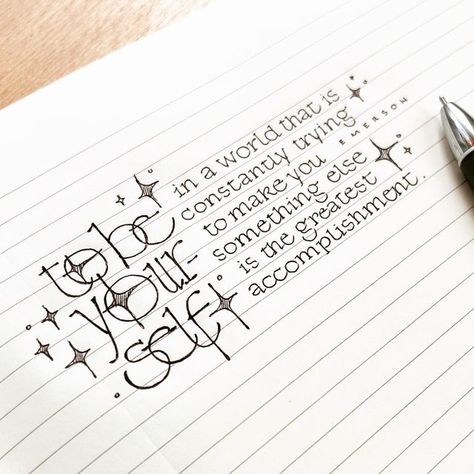 to be
your-
self
in a world that is
constantly trying
to make you
something else
is the greatest
accomplishment.
EMERSON